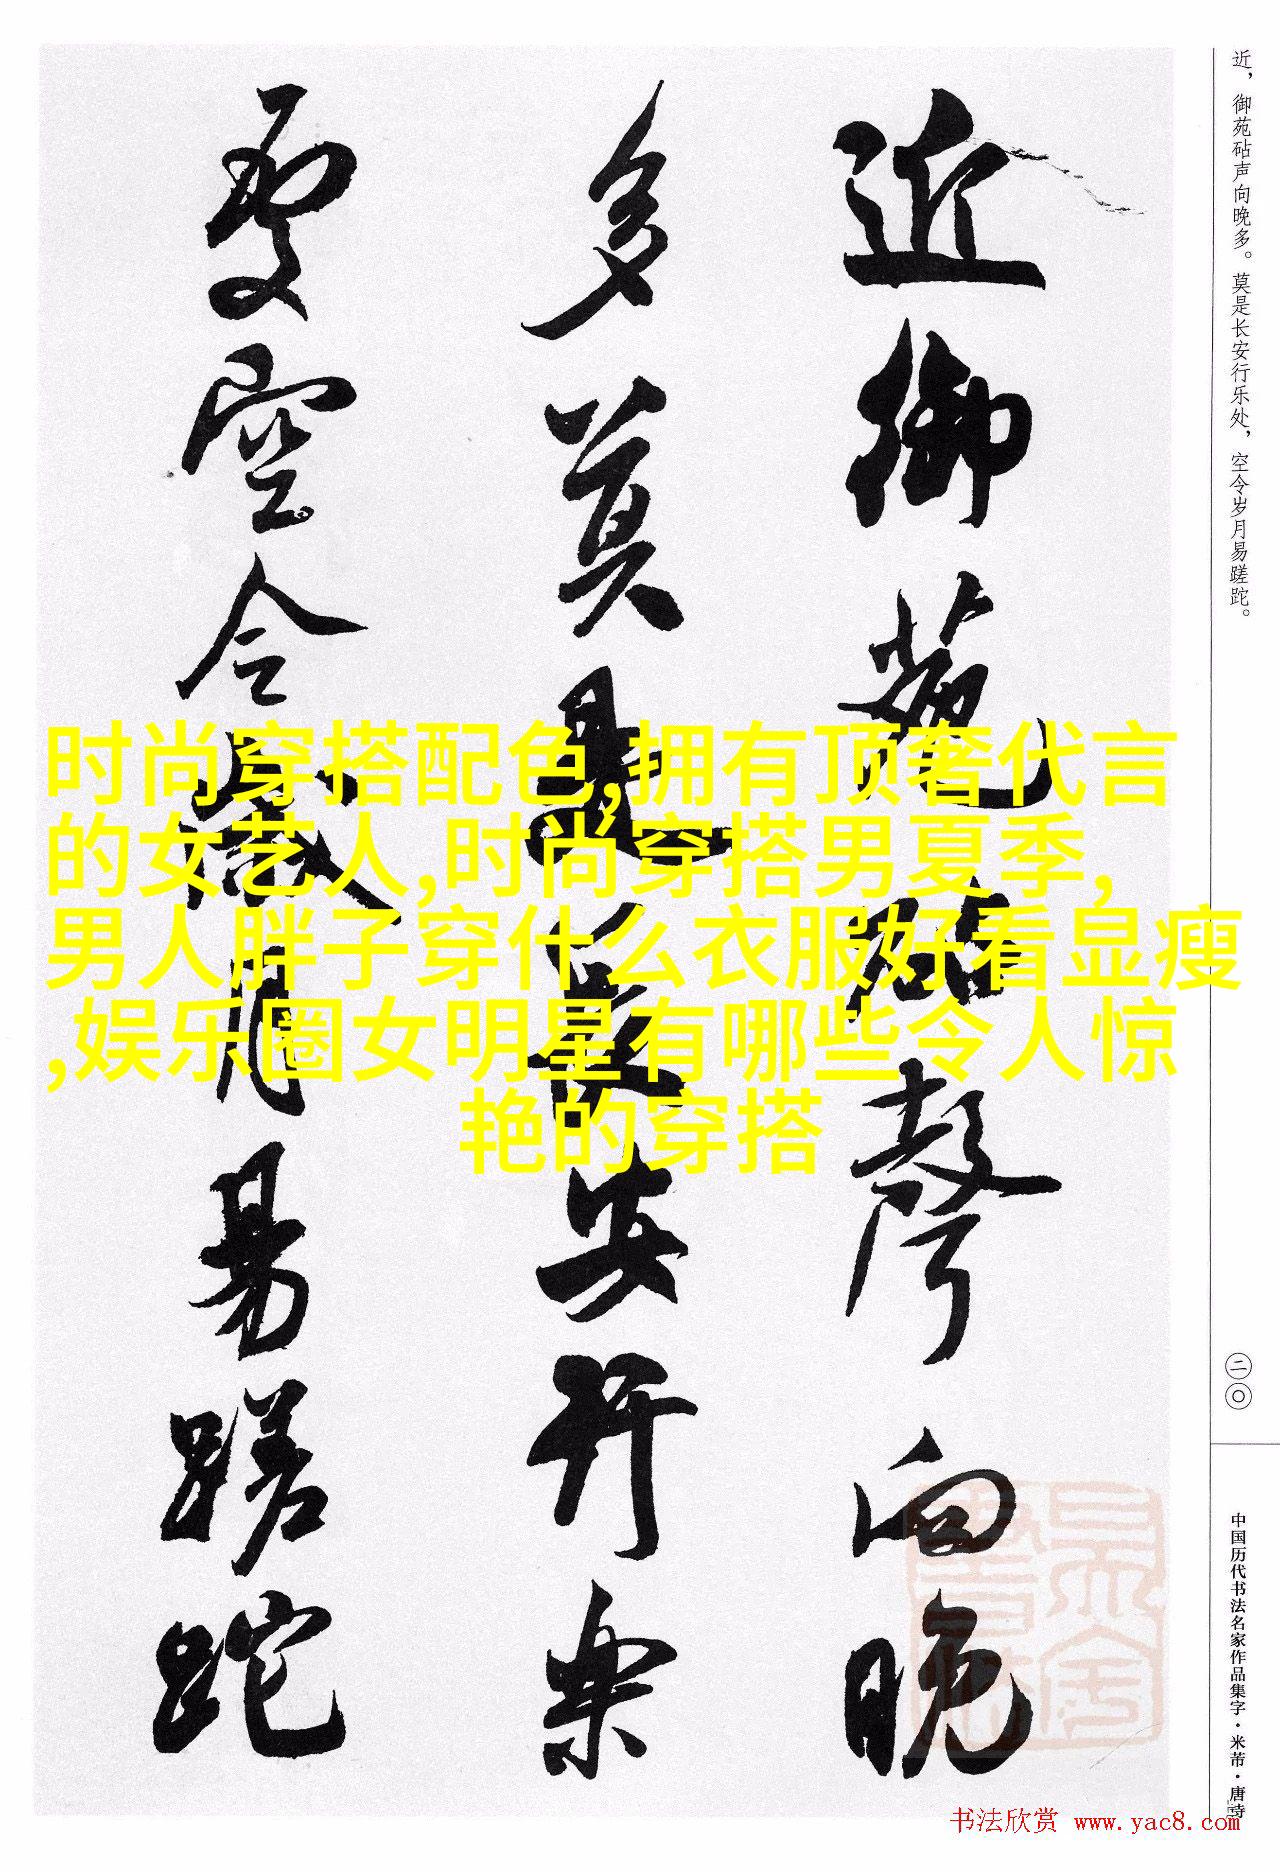 近御苑砧聲向晚
多莫是長安行樂
處空令歲月易蹉跎
近，御苑砧声向晚多。莫是长安行乐处，空令岁月易蹉跎。
二〇
中国历代书法名家作品集字·米芾·唐诗
时尚穿搭配色,拥有顶奢代言
的女艺人,时尚穿搭男夏季,
男人胖子穿什么衣服好看显瘦
,娱乐圈女明星有哪些令人惊
艳的穿搭
书法欣赏 www.yac8.com